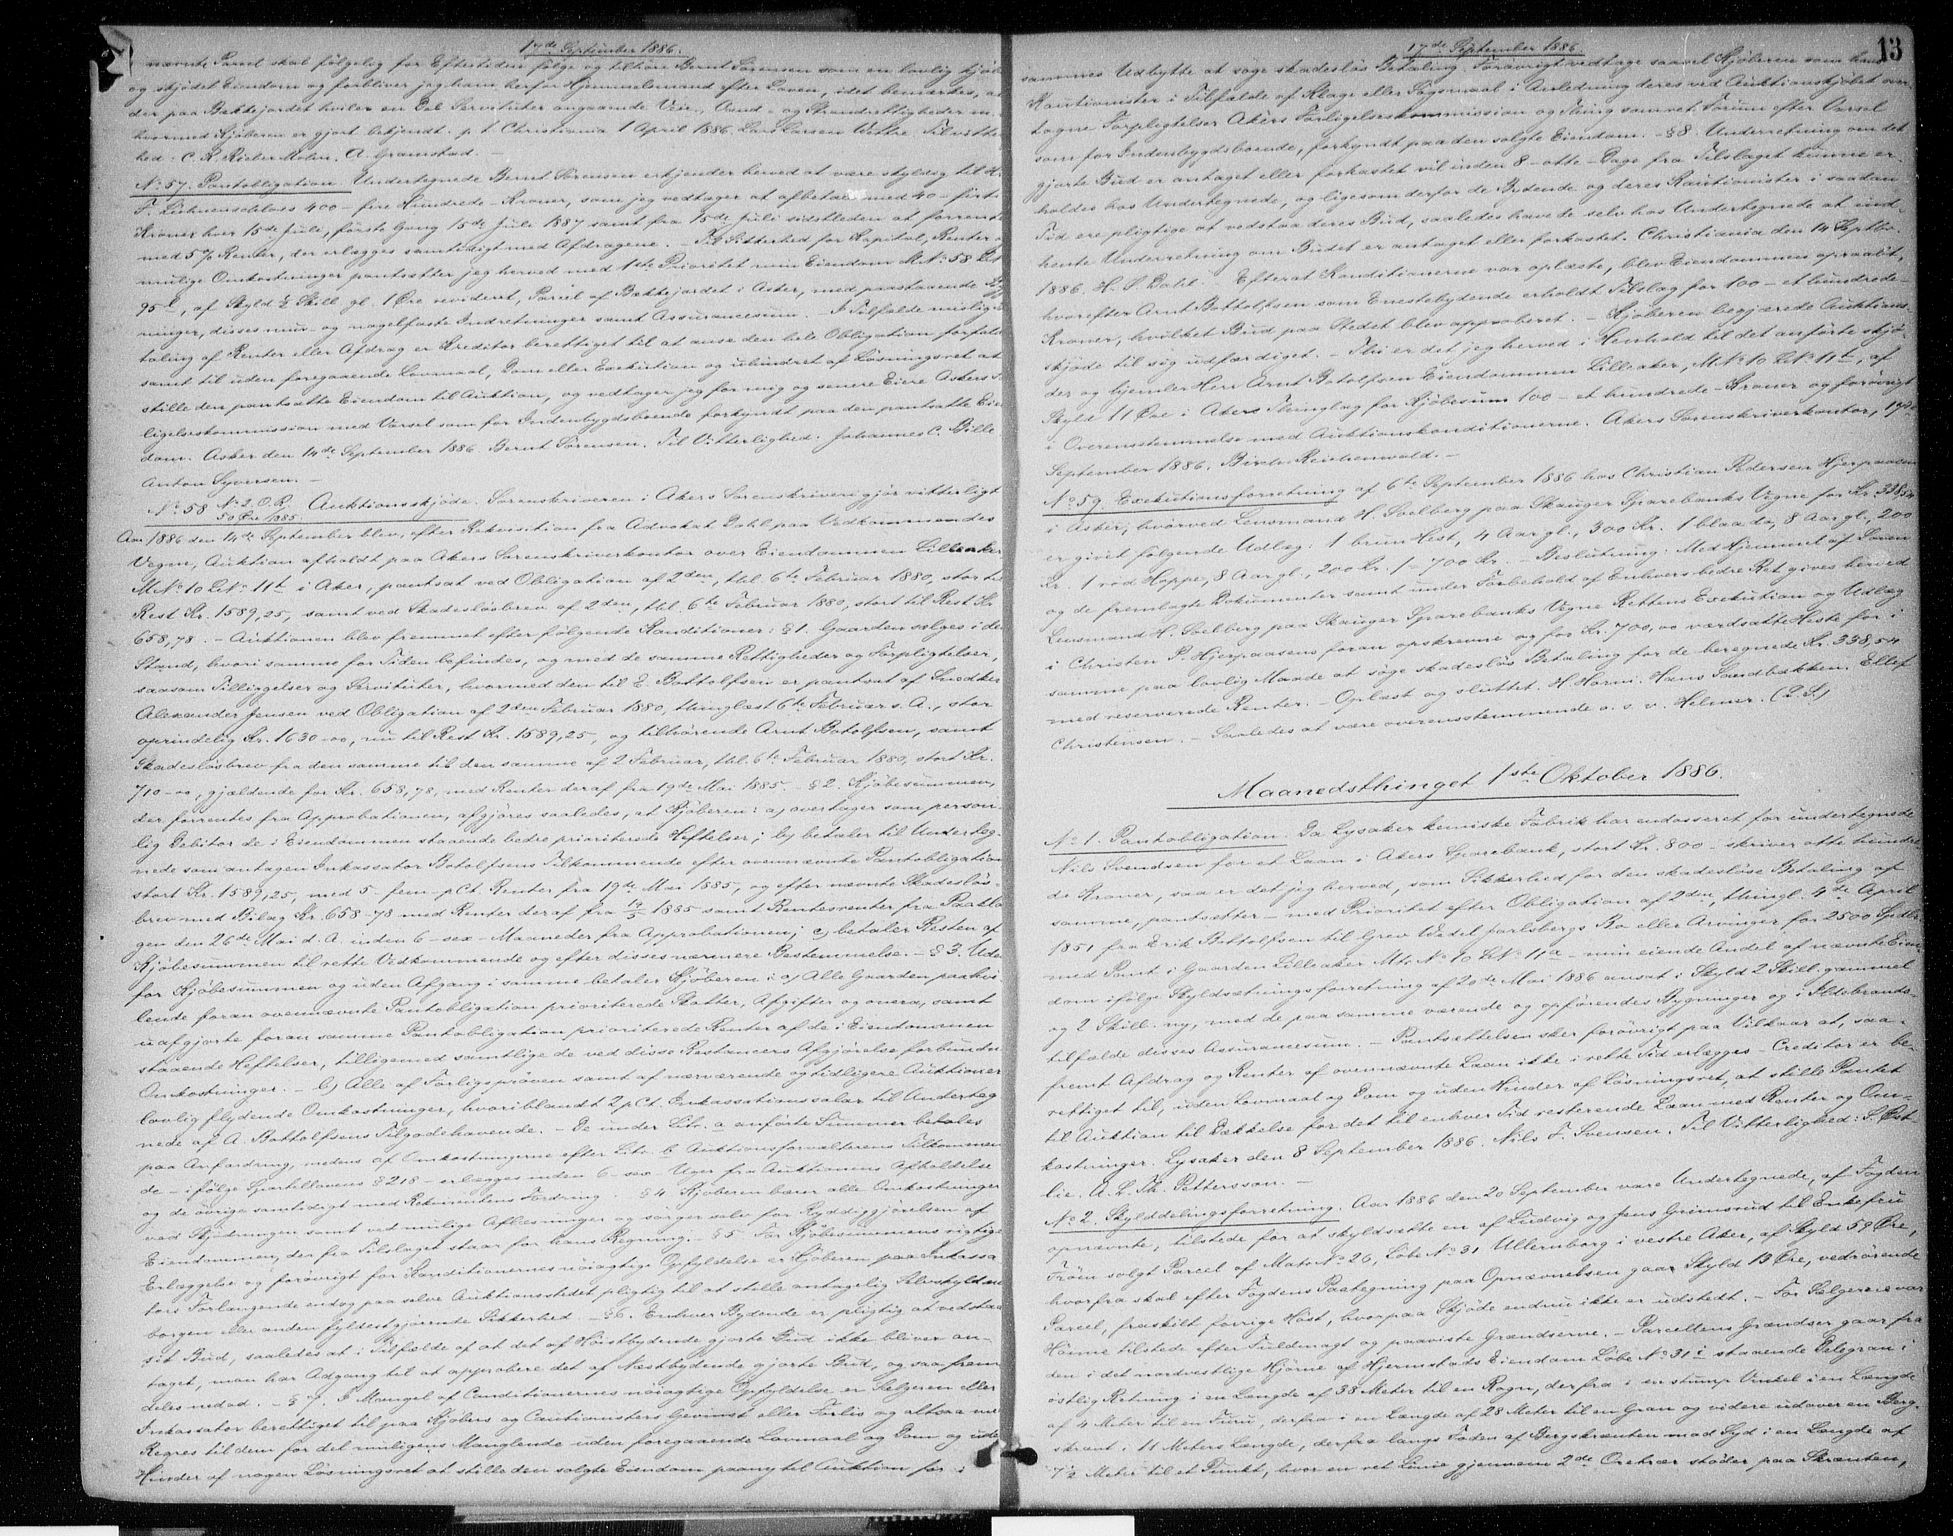 17de September 1886.
nævnte Parcel skal følgelig for Eftertiden følge og tilhøre Bernt Sørensen som en lovlig kjøbt
og skjødet Eiendom og forbliver jeg ham herfor Hjemmelsmand efter Loven, idet bemærkes, at
der paa Bakkejordet hviler en Del Servituter angaaende Veie, Vand- og Strandrettigheder m.
hvormed Kjøberen er gjort bekjendt. p. t. Christiania 1 April 1886 Lars Larsen Vettre. Til Vitter
hed: C. R. A. Gramstad. —
No 57. Pantobligation. Undertegnede Bernt Sørensen erkjender herved at være skyldig til H.
T. 400 – fire Hundrede – Kroner, som jeg vedtager at afbetale med 40 – firti
Kroner hver 15de Juli, første Gang 15de Juli 1887 samt fra 15de Juli sidstleden at forrente
med 5% Renter, der erlægges samtidigt med Afdragene. – Til Sikkerhed for Kapital, Renter og
mulige Omkostninger pantsætter jeg herved med 1ste Prioritet min Eiendom M. No 58 L. No
95, af Skyld ½ Skill gl. 1 Øre revideret, Parcel af Bakkejordet i Asker, med paastaaende Byg
ninger, disses mur- og nagelfaste Indretninger samt Assurancesum. – I Tilfælde mislig
taling af Renter eller Afdrag er Kreditor berettiget til at anse den hele Obligation forfalden
samt til uden foregaaende Lovmaal, Dom eller Exekution og uhindret af Løsningsret at
stille den pantsatte Eiendom til Auktion, og vedtager jeg for mig og senere Eiere Askers
ligelseskommission med Varsel som for Indenbygdsboende forkyndt paa den pantsatte Eien
dom. Asker den 14de September 1886 Bernt Sørensen. Til Vitterlighed: Johannes C. Bille
Anton Syversen. —
No 58 No 2. O. R. 50 Øre 1885 Auktionsskjøde. Sorenskriveren i Akers Sorenskriveri gjør vitterligt
Aar 1886 den 14de September blev, efter Rekvisition fra Advokat Dahl paa Vedkommendes
Vegne, Auktion afholdt paa Akers Sorenskriverkontor over Eiendommen Lilleaker
M. No 10 L. No 11t i Aker, pantsat ved Obligation af 2den, thl. 6te Februar 1880, stor til
Rest Kr. 1589,25, samt ved Skadesløsbrev af 2den, thl. 6te Februar 1880, stort til Rest Kr.
658,78. – Auktionen blev fremmet efter følgende Konditioner: § 1. Gaarden sælges i den
Stand, hvori samme for Tiden befindes, og med de samme Rettigheder og Forpligtelser,
saasom Tilliggelser og Servituter, hvormed den til E. Bottolfsen er pantsat af Snedker
Alexander Jensen ved Obligation af 2den Februar 1880, thinglæst 6te Februar s. A., stor
oprindelig Kr. 1630-00, nu til Rest Kr. 1589,25, og tilhørende Arnt Botolfsen, samt
Skadesløsbrev fra den samme til den samme af 2 Februar, thl. 6te Februar 1880, stort Kr.
710-00, gjældende for Kr. 658,78, med Renter deraf fra 19de Mai 1885. – § 2. Kjøbesummen,
der forrentes fra Approbationen, afgjøres saaledes, at Kjøberen: a) overtager som person-
lig Debitor de i Eiendommen staaende bedre prioriterede Heftelser; b) betaler til Underteg-
nede som antagen Inkassator Botolfsens Tilkommende efter ovennævnte Pantobligation
stort Kr. 1589,25, med 5 – fem – pCt. Renter fra 19de Mai 1885, og efter nævnte Skadesløs-
brev med Bilag Kr. 658-78 med Renter deraf fra 19/5 1885 samt Rentesrenter fra Paakla
gen den 26de Mai d. A. inden 6 – sex – Maaneder fra Approbationen; c) betaler Resten af
Kjøbesummen til rette Vedkommende og efter disses nærmere Bestemmelse. – § 3. Uden
for Kjøbesummen og uden Afgang i samme betaler Kjøberen: a) Alle Gaarden paahvi
lende foran ovennævnte Pantobligation prioriterede Skatter, Afgifter og onera, samt
uafgjorte foran samme Pantobligation prioriterede Renter af de i Eiendommen
staaende Heftelser, tilligemed samtlige de ved disse Restancers Afgjørelse forbundne
Omkostninger. – b) Alle af Forligsprøven samt af nærværende og tidligere Auktioner
lovlig flydende Omkostninger, hvoriblandt 2 pCt. Inkassationssalær til Underteg
nede af A. Bottolfsens Tilgodehavende. – De under Litr. a anførte Summer betales
paa Anfordring, medens af Omkostningerne efter Litr. b Auktionsforvalterens Tilkommen
de – ifølge Sportellovens § 218 – erlægges inden 6 – sex – Uger fra Auktionens Afholdelse
og de øvrige samtidigt med Rekvirentens Fordring. § 4. Kjøberen bærer alle Omkostninger
ved Skjødningen samt ved mulige Aflæsninger og sørger selv for Ryddiggjørelsen af
Eiendommen, der fra Tilslaget staar for hans Regning. – § 5. For Kjøbesummens rigtige
Erlæggelse og forøvrigt for Konditionernes nøiagtige Opfyldelse er Kjøberen paa Inkassa
tors Forlangende endog paa selve Auktionsstedet pligtig til at stille antagelig Selvskyldner
borgen eller anden fyldestgjørende Sikkerhed. – § 6. Enhver Bydende er pligtig at vedstaa
sit Bud, saaledes at i Tilfælde af at det af Høistbydende gjorte Bud ikke bliver an-
taget, man har Adgang til at approbere det af Næstbydende gjorte Bud, og saa frem
deles nedad. – § 7. I Mangel af Conditionernes nøiagtige Opfyldelse er Sælgeren eller
Inkassator berettiget til paa Kjøbers og Cautionisters Gevinst eller Forlis og altsaa med
Regres til dem for det muligens Manglende uden foregaaende Lovmaal og Dom og uden
Hinder af nogen Løsningsret at stille den solgte Eiendom paany til Auktion for i
17de September 1886
13
sammes Udbytte at søge skadesløs Betaling. Forøvrigt vedtage saavel Kjøberen som hans
Kautionister i Tilfælde af Klage eller Søgsmaal i Anledning deres ved Auktionskjøbet over-
tagne Forpligtelser Akers Forligelseskommission og Thing samvet Forum efter Varsel
som for Indenbygdsboende, forkyndt paa den solgte Eiendom. – § 8. Underretning om det
gjorte Bud er antaget eller forkastet vil inden 8 – otte – Dage fra Tilslaget kunne er-
holdes hos Undertegnede, og ligesom derfor de Bydende og deres Kautionister i saadan
Tid ere pligtige at vedstaa deres Bud, saaledes have de selv hos Undertegnede at ind-
hente Underretning om Budet er antaget eller forkastet. Christiania den 14 Septbr.
1886. H. S. Dahl. Efterat Konditionerne var oplæste, blev Eiendommen opraabt,
hvorefter Arnt Bottolfsen som Enestebydende erholdt Tilslag for 100 – et hundrede –
Kroner, hvilket Bud paa Stedet blev approberet. – Kjøberen begjærede Auktions-
skjøde til sig udfærdiget. – Thi er det jeg herved i Henhold til det anførte skjø-
der og hjemler Herr Arnt Botolfsen Eiendommen Lilleaker, M. No 10 L. No 11t, af
Skyld 11 Øre i Akers Thinglag for Kjøbesum 100 – et hundrede – Kroner og forøvrigt
i Overensstemmelse med Auktionskonditionerne. Akers Sorenskriverkontor, 17de
September 1886. Birch Reichenwald. –
No 59. Exekutionsforretning af 6te September 1886 hos Christian Pedersen Hjerpaasen
i Asker, hvorved Lensmand H. Solberg paa Skauger Sparebanks Vegne for Kr. 338,54
er givet følgende Udlæg: 1 brun Hest, 4 Aar gl., 300 Kr. 1 blaa do, 8 Aar gl., 200
Kr. 1 rød Hoppe, 8 Aar gl., 200 Kr. = 700 Kr. – Beslutning: Med Hjemmel af Loven
og de fremlagte Dokumenter samt under Forbehold af Enhvers bedre Ret gives herved
Lensmand H. Solberg paa Skauger Sparebanks Vegne Rettens Exekution og Udlæg
i Christen P. Hjerpaasens foran opskrevne og for Kr. 700,00 værdsatte Heste for i
samme paa lovlig Maade at søge skadesløs Betaling for de beregnede Kr. 338,54
med reserverede Renter. – Oplæst og sluttet. H. Horni. Hans Sandbakken. Ellef
Christensen. – Saaledes at være overensstemmende o. s. v. Helmer. (L. S.)
Maanedsthinget 1ste Oktober 1886.
No 1. Pantobligation. Da Lysaker kemiske Fabrik har endosseret for undertegnede
Nils Svendsen for et Laan i Akers Sparebank, stort Kr. 800 – skriver otte hundre-
de Kroner, saa er det jeg herved, som Sikkerhed for den skadesløse Betaling af
samme, pantsætter – med Prioritet efter Obligation af 2den, thingl. 4de April
1851 fra Erik Bottolfsen til Grev Wedel Jarlsbergs Bo eller Arvinger for 2500 Spdlr.
med Pant i Gaarden Lilleaker Mt. No 10 L. No 11a – min eiende Andel af nævnte Eien
dom ifølge Skyldsætningsforretning af 20de Mai 1886 ansat i Skyld 2 Skill. gammel
og 2 Skill. ny, med de paa samme værende og opførendes Bygninger og i Ildebrands-
tilfælde disses Assurancesum. – Pantsættelsen sker forøvrigt paa Vilkaar at, saa-
fremt Afdrag og Renter af ovennævnte Laan ikke i rette Tid erlægges – Creditor er be-
rettiget til, uden Lovmaal og Dom og uden Hinder af Løsningsret, at stille Pantet
til Auktion til Dækkelse for det til enhver Tid resterende Laan med Renter og Om-
kostninger. Lysaker den 8 September 1886. Nils T. Svensen. Til Vitterlighed: S. Øst-
lie. A. L. Th. Pettersson. –
No 2. Skylddelingsforretning. Aar 1886 den 20 September vare Undertegnede, af Fogden
opnævnte, tilstede for at skyldsætte en af Ludvig og Jens Grimsrud til Enkefru
Frøen solgt Parcel af Mats. No 26, Løbe No 31 Ullernborg i vestre Aker, af Skyld 59 Øre,
hvorfra skal efter Fogdens Paategning paa Opnævnelsen gaar Skyld 13 Øre, vedrørende
Parcel, fraskilt forrige Høst, hvorpaa Skjøde endnu ikke er udstedt. – For Sælgerne var
Hønne tilstede efter Fuldmagt og paaviste Grændserne. – Parcellens Grændser gaar fra
den i det nordvestlige Hjørne af Hjermstads Eiendom Løbe No 31 i staaende Delegran i
østlig Retning i en Længde af 38 Meter til en Rogn, derfra i en stump Vinkel i en Længde
af 4 Meter til en Furu, derfra i en Længde af 28 Meter til en Gran og videre udover en Berg-
skrænt i 11 Meters Længde, derfra langs Foden af Bergskrænten mod Syd i en Længde af
72 Meter til et Punkt, hvor en ret Linie gjennem 2de Oretrær støder paa Skrænten,